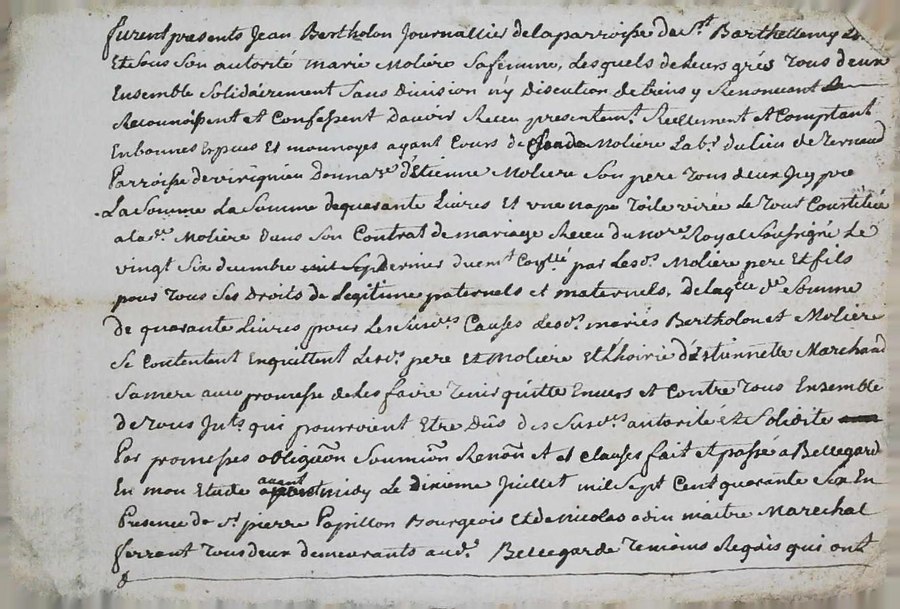 furent presents Jean Bertholon Journallier de la parroisse de St. Barthellemy
Et sous son autorité marie Moliere sa femme, Lesquels de leurs grés tous deux
Ensemble solidairement sans division ny discution de biens y Renoncant
Reconnoissent et Confessent davoir Receu presentemt. Reellement et Comptant
En bonnes Especes Et monnoyes ayant Cours de Moliere Labr. du lieu de
Parroisse de virignieu Donnare. d'Etienne Moliere son pere tous deux
La somme La somme de quarante Livres Et une nape Toile virée Le tout Constitué
a lade. Moliere dans son Contrat de mariage Receu du nore. Royal soussigné Le
vingt six decembre dernier duemt. par Lesds. Moliere pere Et fils
pour tous ses droits de Legitime paternels et maternels, De laqlle de. somme
De quarante Livres pour Les susdes. Causes Lesds. mariés Bertholon et Moliere
se Contentent En quittent Lesds. pere Et Moliere Et L'hoirie d'Estiennette Marchand
sa mere avec promesse de Les faire tenir quitte Envers et Contre tous Ensemble
de tous Intts. qui pourroient Etre Dûs des susdes. autorité Et solidité
Par promesses obligãon soumiõn Renõn Et et clauses fait Et passé a Bellegard
En mon Etude avant midy Le dixieme Juillet mil sept Cent quarante six En
Presence de Sr. pierre Papillon Bourgeois Et de Nicolas maitre Marechal
ferrant tous deux demeurants aud. Bellegarde temoins Requis qui ont